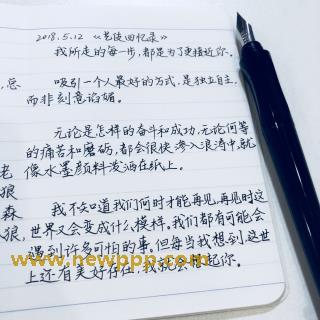 2018.5.12 《艺伎回忆录》
我所走的每一步，都是为了更接近你。
吸引一个人最好的方式，是独立自主，
而非刻意谄媚。
无论是怎样的奋斗和成功，无论何等
的痛苦和磨砺，都会很快渗入浪涛中，就
像水墨颜料泼洒在纸上。
我不知道我们何时才能再见，再见时这
世界又会变成什么模样。我们都有可能会
遇到许多可怕的事。但每当我想到，这世
上还有美好存在，我就会想起你。
，总
老
狼
森
狼，
www.newppp.com